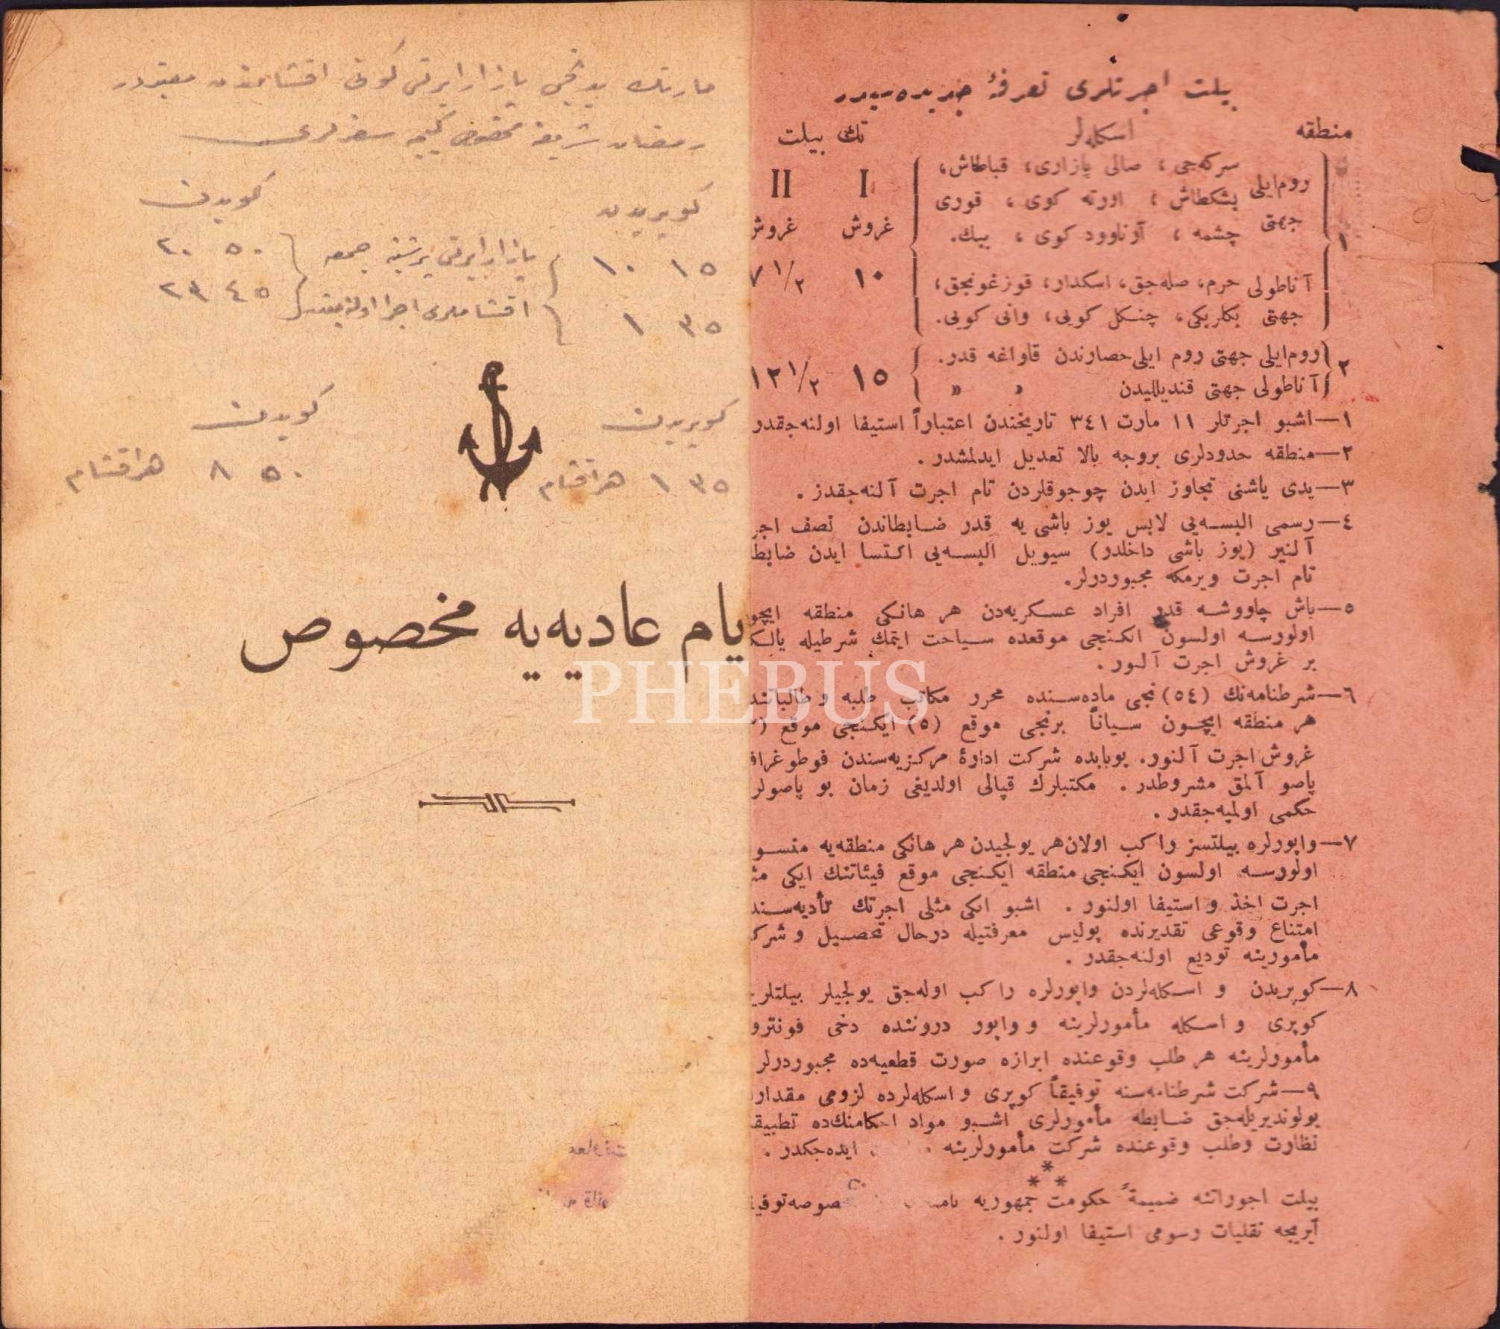 بيلت اجرتلرى تعرفۀ جديده‌سيدر
منطقه اسكله‌لر تك بيلت
I II
غروش غروش
١ روم‌ايلى جهتى سركه‌جى، صالى پازارى، قباطاش،
بشكطاش، اورته كوى، قورى
چشمه، آرناوود كوى، ببك.
١٠ ٧ ١/٢
آناطولى جهتى حرم، صله‌جق، اسكدار، قوزغونجق،
بكلربكى، چنكل كويى، وانى كويى.
٢ روم‌ايلى جهتى روم ايلى‌حصارندن قاواغه قدر.
آناطولى جهتى قنديللیدن » »
١٥ ١٢ ١/٢
١—اشبو اجرتلر ١١ مارت ٣٤١ تاريخندن اعتباراً استيفا اولنه‌جقدر
٢—منطقه حدودلرى بروجه بالا تعديل ايدلمشدر.
٣—يدى ياشنى تجاوز ايدن چوجوقلردن تام اجرت آلنه‌جقدر.
٤—رسمى البسه‌يى لابس يوز باشى يه قدر ضابطاندن نصف اجر
آلنير (يوز باشى داخلدر) سيويل البسه‌يى اكتسا ايدن ضابطا
تام اجرت ويرمكه مجبوردرلر.
٥—باش چاووشه قدر افراد عسكريه‌دن هر هانكى منطقه ايچو
اولورسه اولسون ايكنجى موقعده سياحت ايتمك شرطيله يالكز
بر غروش اجرت آلنور.
٦—شرطنامه‌نك (٥٤)نجى ماده‌سنده محرر مكاتب طلبه و طالباتند
هر منطقه ايچون سياناً برنجى موقع (٥) ايكنجى موقع
غروش اجرت آلنور. بوبابده شركت ادارۀ مركزيه‌سندن فوطوغراف
پاصو آلمق مشروطدر. مكتبلرك قپالى اولديغى زمان بو پاصولر
حكمى اولميه‌جقدر.
٧—واپورلره بيلتسز راكب اولان هر يولجيدن هر هانكى منطقه‌يه منسو
اولورسه اولسون ايكنجى منطقه ايكنجى موقع فيئاتنك ايكى مث
اجرت اخذ و استيفا اولنور. اشبو ايكى مثلى اجرتك تأديه‌سند
امتناع وقوعى تقديرنده پوليس معرفتيله درحال تحصيل و شرك
مأمورينه توديع اولنه‌جقدر.
٨—كوپريدن و اسكله‌لردن واپورلره راكب اوله‌جق يولجيلر بيلتلري
كوپرى و اسكله مأمورلرينه و واپور دروننده دخى قونترو
مأمورلرينه هر طلب وقوعنده ابرازه صورت قطعيه‌ده مجبوردرلر
٩—شركت شرطنامه‌سنه توفيقاً كوپرى و اسكله‌لرده لزومى مقدار
بولونديريله‌جق ضابطه مأمورلرى اشبو مواد احكامنك‌ده تطبيق
نظارت وطلب وقوعنده شركت مأمورلرينه ايده‌جكدر.
***
بيلت اجوراتنه ضميمةً حكومت جمهوريه نامنه صوصه توفيق
آيريجه نقليات رسومى استيفا اولنور.
مارتك يدنجى پازار ايرتسى كونى اقشامندن معتبردر
رمضان شريفه مخصوص كيجه سفرلرى
كوپريدن كويدن
١٠ ١٥ پازار ايرتسى پرشنبه جمعه ٢٠ ٥٠
١ ٣٥ اقشاملرى اجرا اولنه‌جقدر ٢٣ ٤٥
كوپريدن كويدن
١ ٣٥ هر اقشام ٨ ٥٠ هر اقشام
يام عاديه‌يه مخصوص
PHEBUS